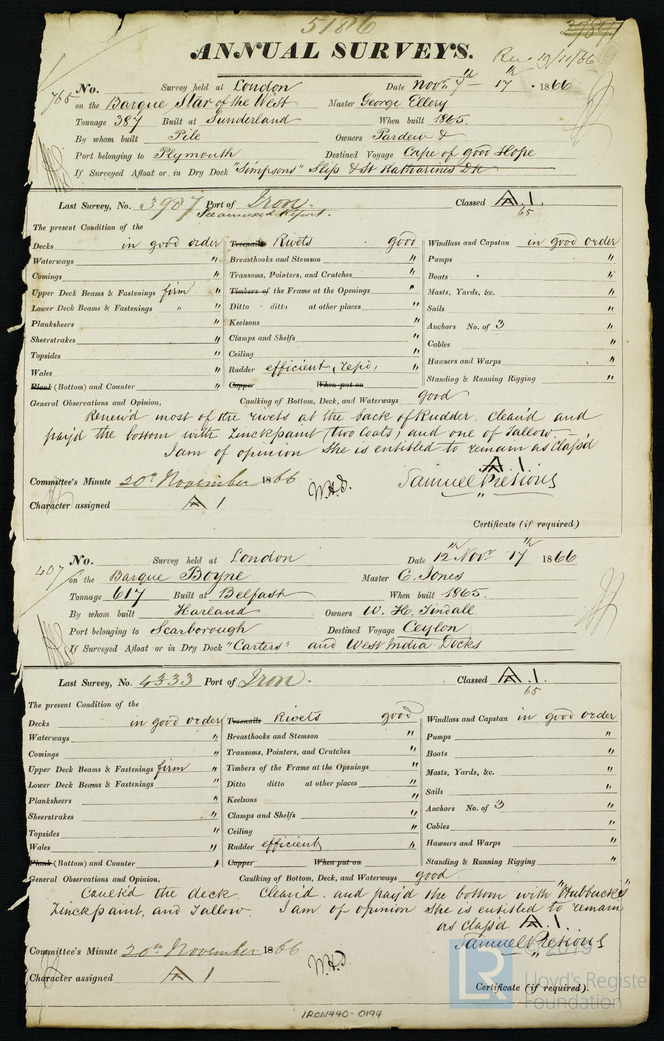 5186
ANNUAL SURVEYS.
Rec 19/11/66
765
No. Survey held at London Date Novr. 7th - 17th 1866
on the Barque Star of the West Master George Ellery
Tonnage 387 Built at Sunderland When built 1865.
By whom built Pile Owners Pardew &
Port belonging to Plymouth Destined Voyage Cape of Good Hope
If Surveyed Afloat or in Dry Dock "Simpsons" Slip & St Katharines Dk
Last Survey, No. 3987 Port of Iron. Classed A.1.
See annexed Report. 65
The present Condition of the
Decks in good order Treenails Rivets good Windlass and Capstan in good order
Waterways " Breasthooks and Stemson " Pumps "
Comings " Transoms, Pointers, and Crutches " Boats "
Upper Deck Beams & Fastenings firm " Timbers of the Frame at the Openings " Masts, Yards, &c. "
Lower Deck Beams & Fastenings " " Ditto ditto at other places " Sails "
Planksheers " Keelsons " Anchors No. of 3 "
Sheerstrakes " Clamps and Shelfs " Cables "
Topsides " Ceiling " Hawsers and Warps "
Wales " Rudder efficient, repd, " Standing & Running Rigging "
Plank (Bottom) and Counter " Copper When put on
General Observations and Opinion, Caulking of Bottom, Deck, and Waterways good
Renew'd most of the rivets at the back of Rudder, Clean'd and
pay'd the bottom with Zinckpaint (two Coats) and one of Tallow. -
I am of opinion She is entitled to remain as Class'd
A.1.
Committee's Minute 20th November 1866 W.H.S. Samuel Pretious
Character assigned A 1
Certificate (if required)
407
No. Survey held at London Date 12th Novr. 17th 1866
on the Barque Boyne Master C. Jones
Tonnage 617 Built at Belfast When built 1865.
By whom built Harland Owners W. H. Tindall
Port belonging to Scarborough Destined Voyage Ceylon
If Surveyed Afloat or in Dry Dock "Carters" and West India Docks
Last Survey, No. 4333 Port of Iron. Classed A.1.
65
The present Condition of the
Decks in good order Treenails Rivets good Windlass and Capstan in good order
Waterways " Breasthooks and Stemson " Pumps "
Comings " Transoms, Pointers, and Crutches " Boats "
Upper Deck Beams & Fastenings firm " Timbers of the Frame at the Openings " Masts, Yards, &c. "
Lower Deck Beams & Fastenings " Ditto ditto at other places " Sails "
Planksheers " Keelsons " Anchors No. of 3 "
Sheerstrakes " Clamps and Shelfs " Cables "
Topsides " Ceiling " Hawsers and Warps "
Wales " Rudder efficient " Standing & Running Rigging "
Plank (Bottom) and Counter " Copper When put on
General Observations and Opinion, Caulking of Bottom, Deck, and Waterways good
Caulk'd the deck. Clean'd and pay'd the bottom with "Hubbucks"
Zinckpaint, and Tallow. I am of opinion She is entitled to remain
as Class'd A.1.
Committee's Minute 20th November 1866 W.H.S. Samuel Pretious
Character assigned A 1
Certificate (if required).
© 2019
LR Lloyd's Register
Foundation
IRON440-0194